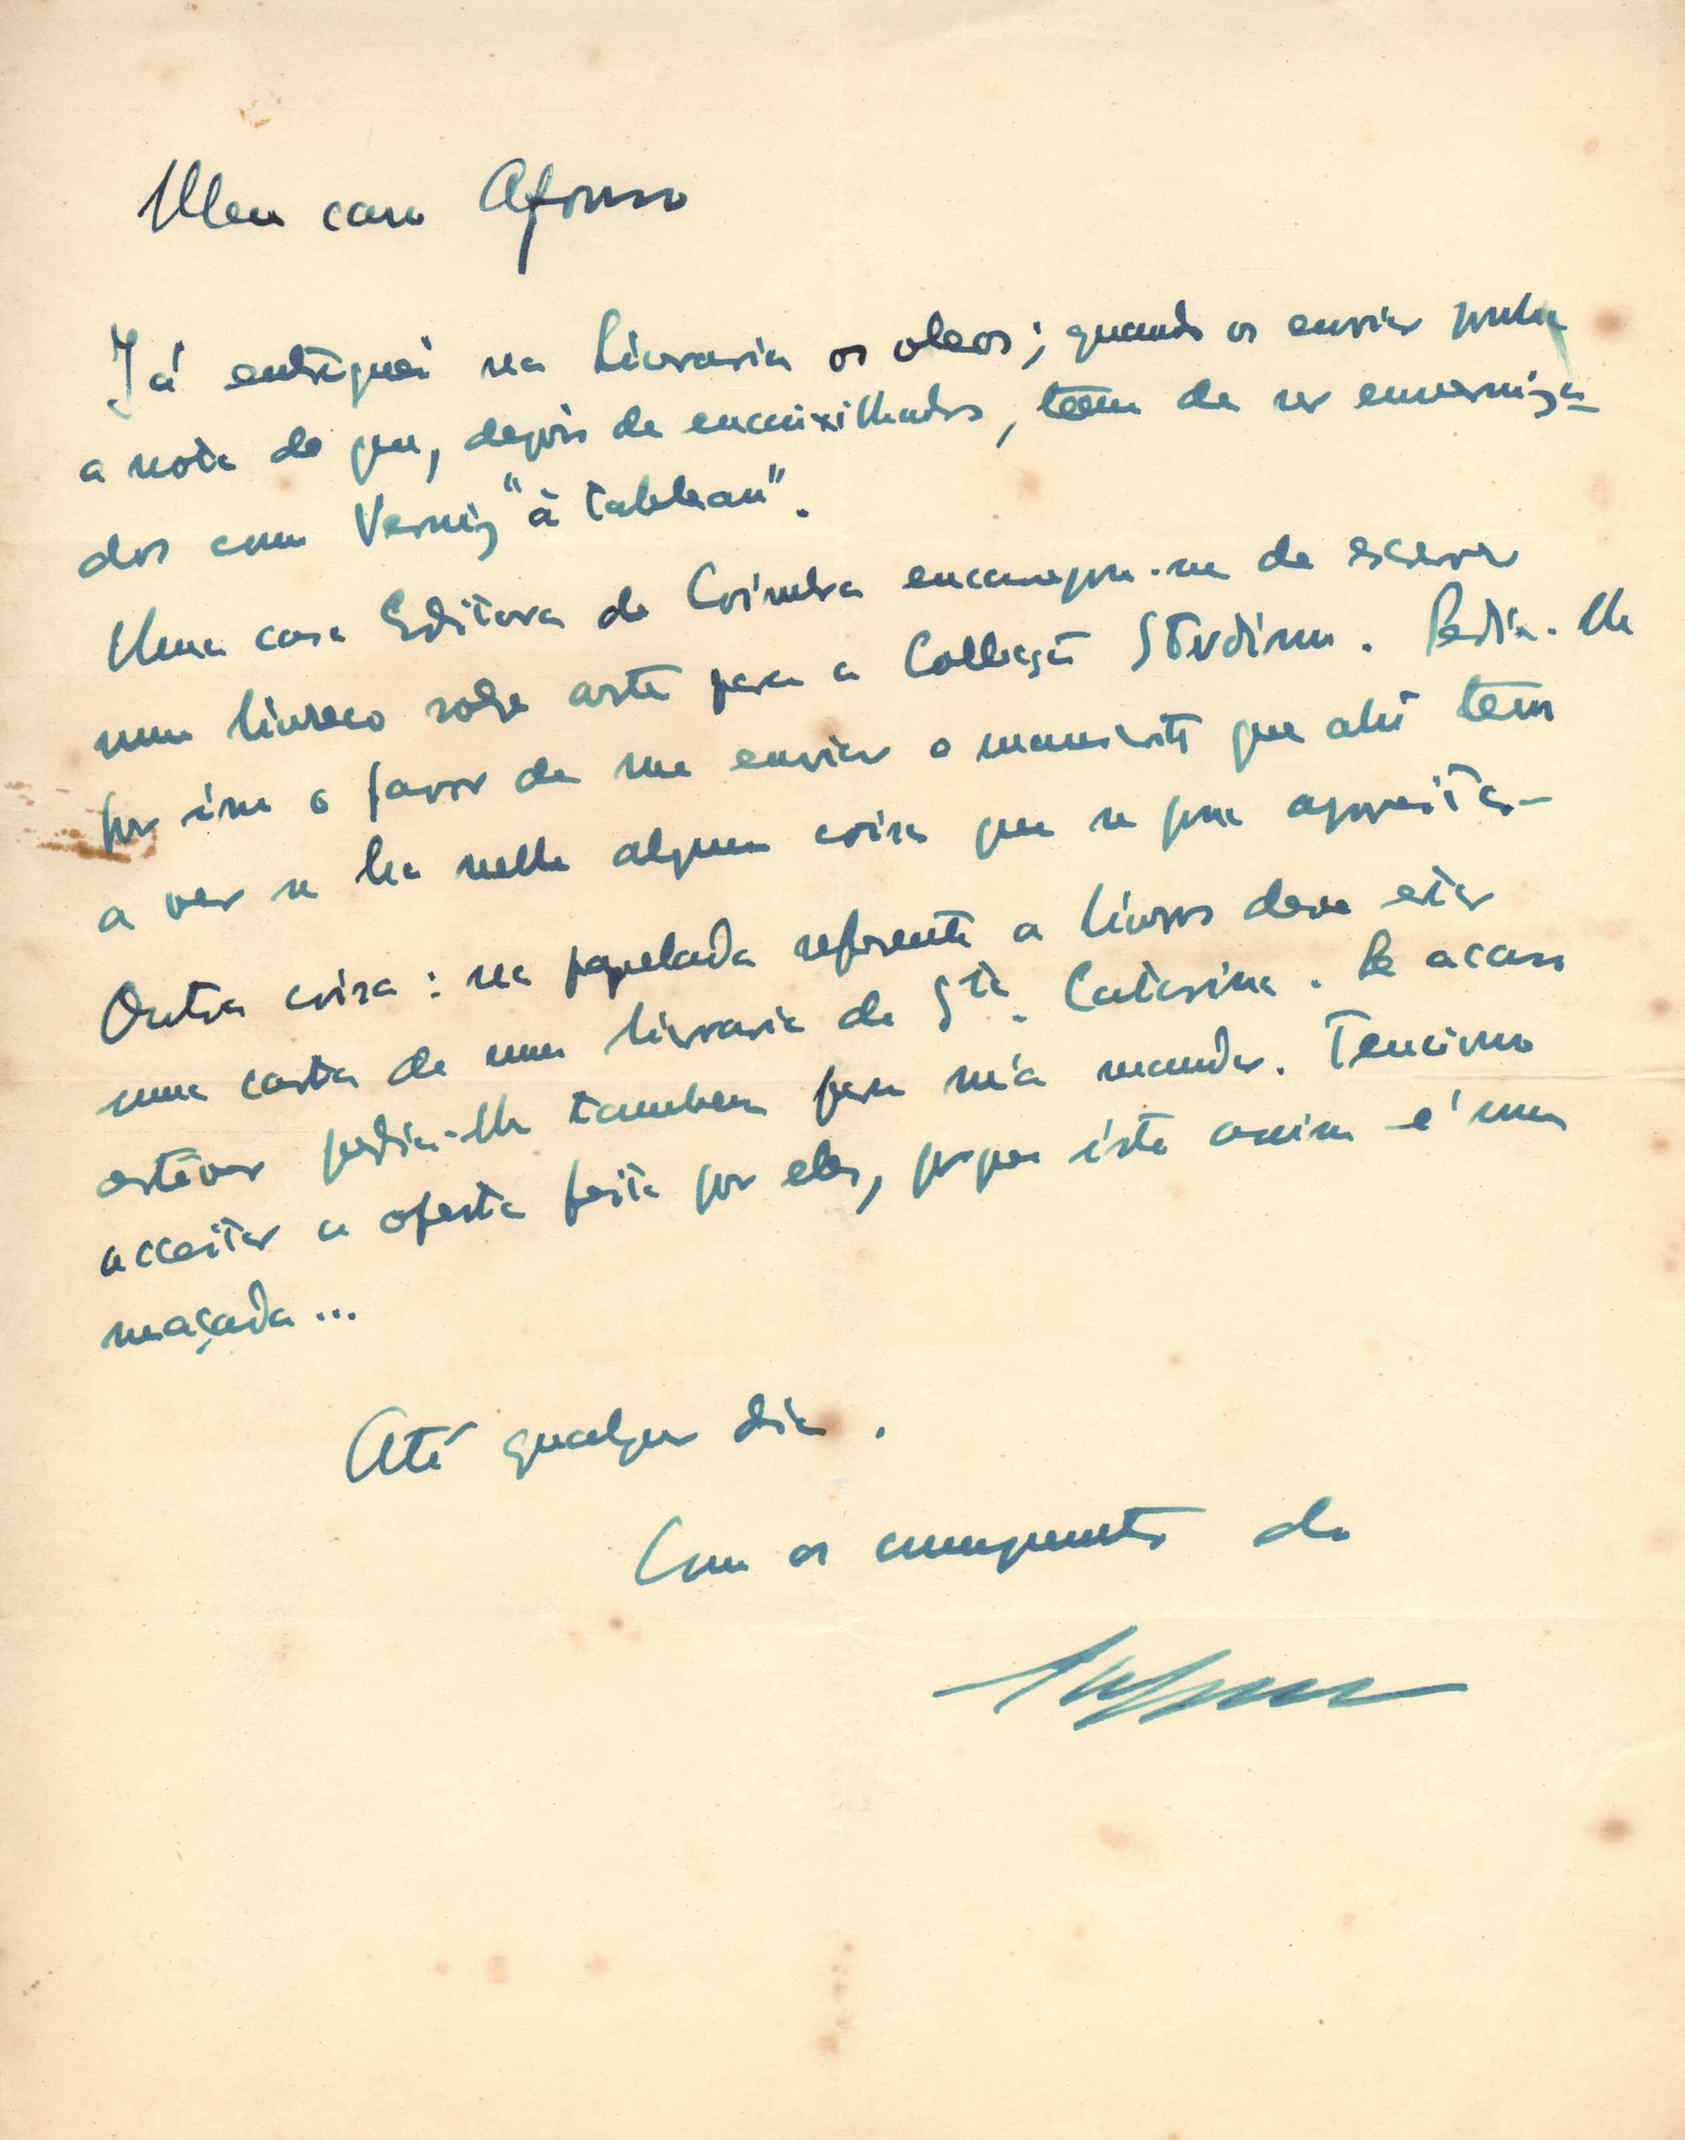 Meu caro Afonso
Já entreguei na Livraria os oleos; quando os enviar ponha
a nota de que, depois de encaixilhados, teem de ser enverniza-
dos com Verniz "à tableau".
Uma casa Editora de Coimbra encarregou-me de escrever
um livreco sobre arte para a Collecção Studium. Pedia-lhe
por isso o favor de me enviar o manuscrito que ahi tem
a ver se ha nelle alguma coisa que se possa aproveitar-
Outra coisa: na papelada referente a livros deve estar
uma carta de uma livraria de Sta. Catarina. Se acaso
estiver pedia-lhe tambem para m'a mandar. Tenciono
acceitar a oferta feita por eles, porque isto assim é uma
maçada...
Até qualquer dia.
Com os cumprimentos do